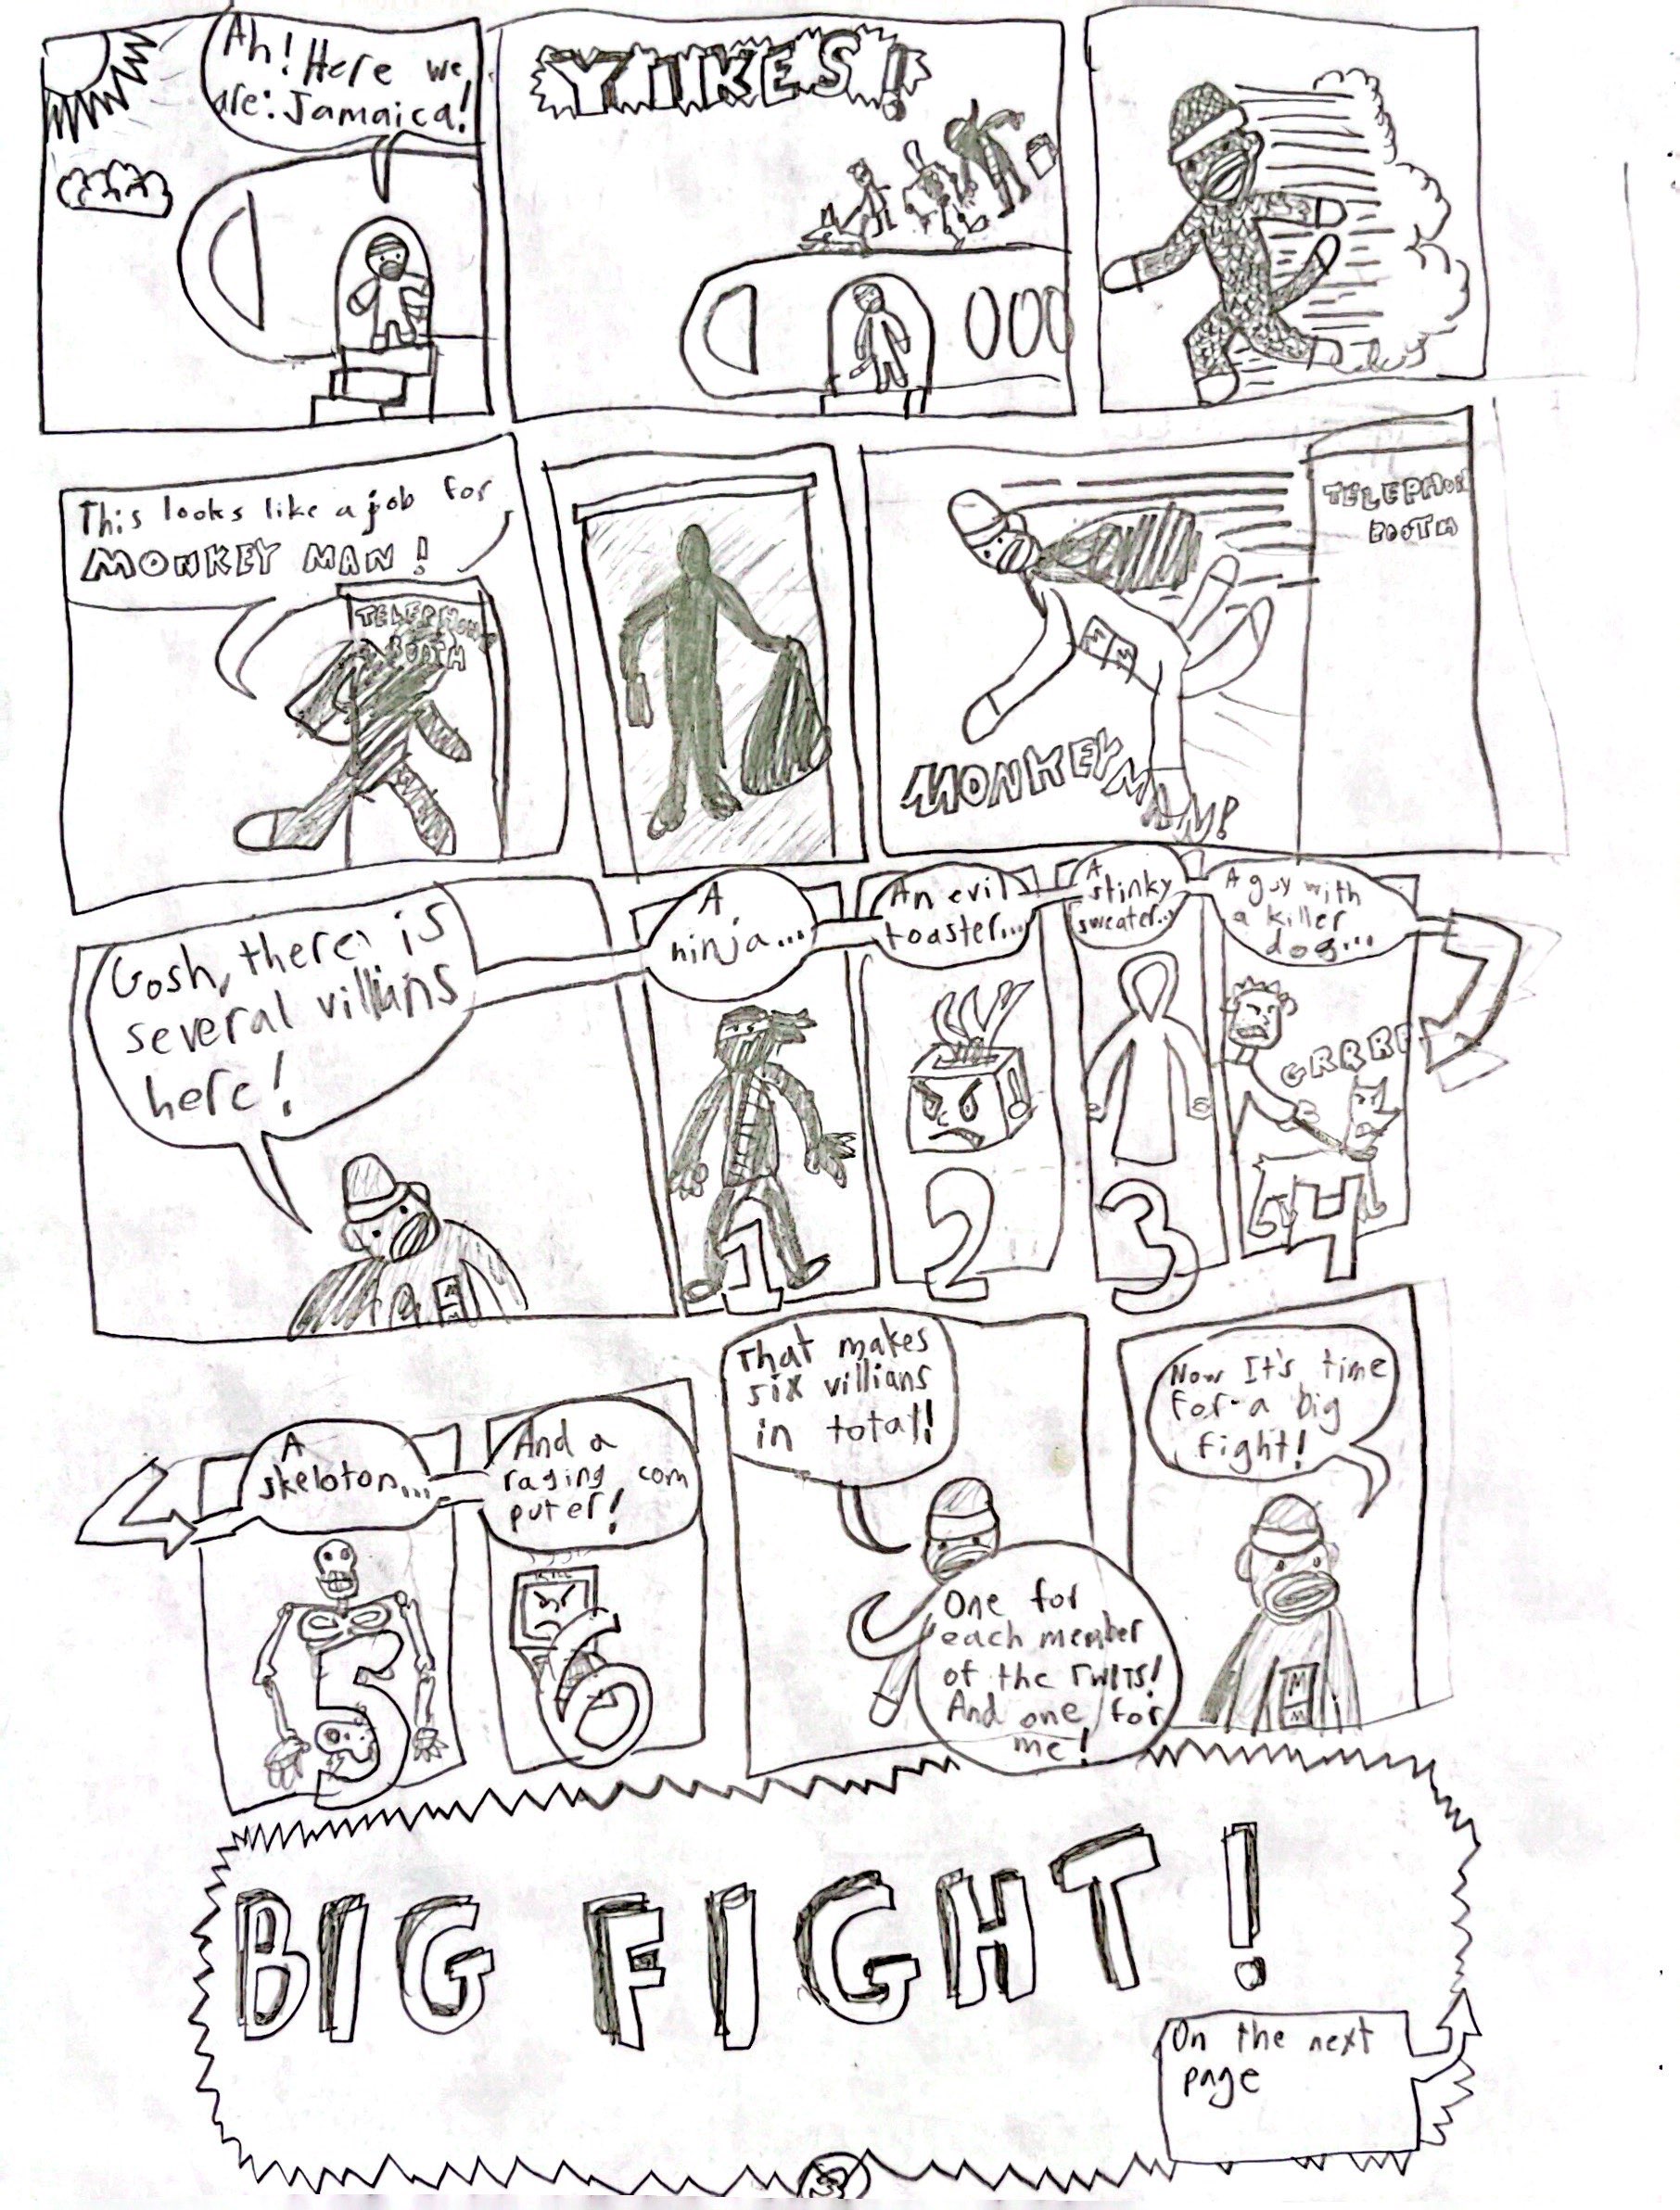 Ah! Here we
are: Jamaica!
YIKES!
This looks like a job for
MONKEY MAN!
TELEPHONE
BOOTH
MONKEY MAN!
MM
TELEPHON
BOOTH
Gosh, there is
several villians
here!
A
ninja...
An evil
toaster...
A
stinky
sweater...
A guy with
a killer
dog...
GRRRR
1
2
3
4
A
skeloton...
And a
raging com
puter!
5
6
That makes
six villians
in total!
One for
each member
of the TWITS!
And one for
me!
Now It's time
for a big
fight!
MM
BIG FIGHT!
On the next
page